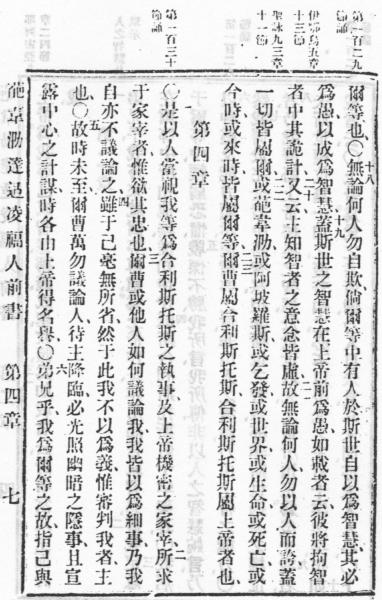 第一百二九
節誦
伊鄂烏五章
十三節
聖詠九三章
十一節
第一百三十
節誦
爾等也〇十八無論何人勿自欺倘爾等中有人於斯世自以爲智慧其必
爲愚以成爲智慧十九蓋斯世之智慧在上帝前爲愚如載者云彼將拘智
者中其詭計二十又云主知智者之意念皆虛二一故無論何人勿以人而誇蓋
一切皆屬爾二二或葩韋泐或阿坡羅斯或乞發或世界或生命或死亡或
今時或來時皆屬爾等二三爾曹屬合利斯托斯合利斯托斯屬上帝者也〇
第四章
〇是以人當視我等爲合利斯托斯之執事及上帝機密之家宰二所求
于家宰者惟欲其忠也三爾曹或他人如何議論我我皆以爲細事乃我
自亦不議論之四雖于己毫無所省然于此我不以爲義惟審判我者主
也〇五故時未至爾曹萬勿議論人待主降臨必光照幽暗之隱事且宣
露中心之計謀時各由上帝得名譽〇六弟兄乎我爲爾等之故指己與
葩韋泐達适凌福人前書 第四章 七